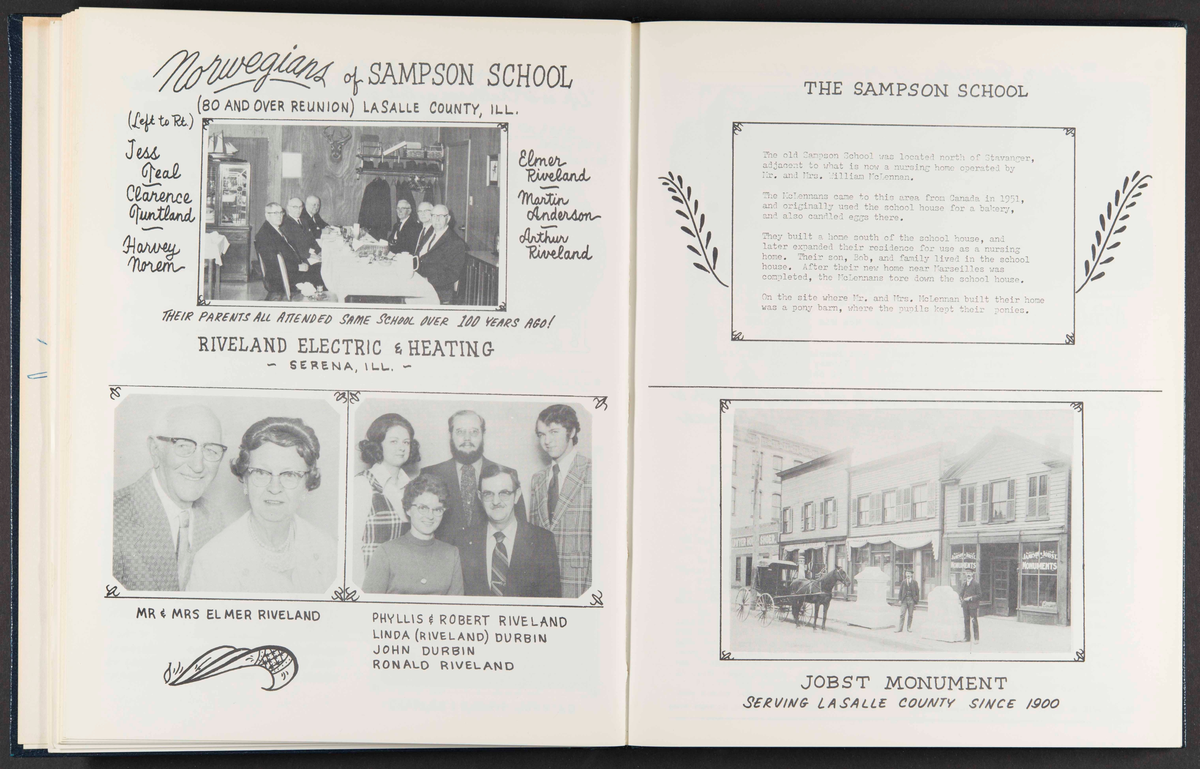 Norwegians of SAMPSON SCHOOL
(80 AND OVER REUNION) LASALLE COUNTY, ILL.
(Left to Rt.)
Jess
Teal
Clarence
Tuntland
Harvey
Norem
Elmer
Riveland
Martin
Anderson
Arthur
Riveland
THEIR PARENTS ALL ATTENDED SAME SCHOOL OVER 100 YEARS AGO!
RIVELAND ELECTRIC & HEATING
- SERENA, ILL. -
MR & MRS ELMER RIVELAND
PHYLLIS & ROBERT RIVELAND
LINDA (RIVELAND) DURBIN
JOHN DURBIN
RONALD RIVELAND
THE SAMPSON SCHOOL
The old Sampson School was located north of Stavanger,
adjacent to what is now a nursing home operated by
Mr. and Mrs. William McLennan.
The McLennans came to this area from Canada in 1951,
and originally used the school house for a bakery,
and also candled eggs there.
They built a home south of the school house, and
later expanded their residence for use as a nursing
home. Their son, Bob, and family lived in the school
house. After their new home near Marseilles was
completed, the McLennans tore down the school house.
On the site where Mr. and Mrs. McLennan built their home
was a pony barn, where the pupils kept their ponies.
MONUMENTS
MONUMENTS
JOBST MONUMENT
SERVING LASALLE COUNTY SINCE 1900